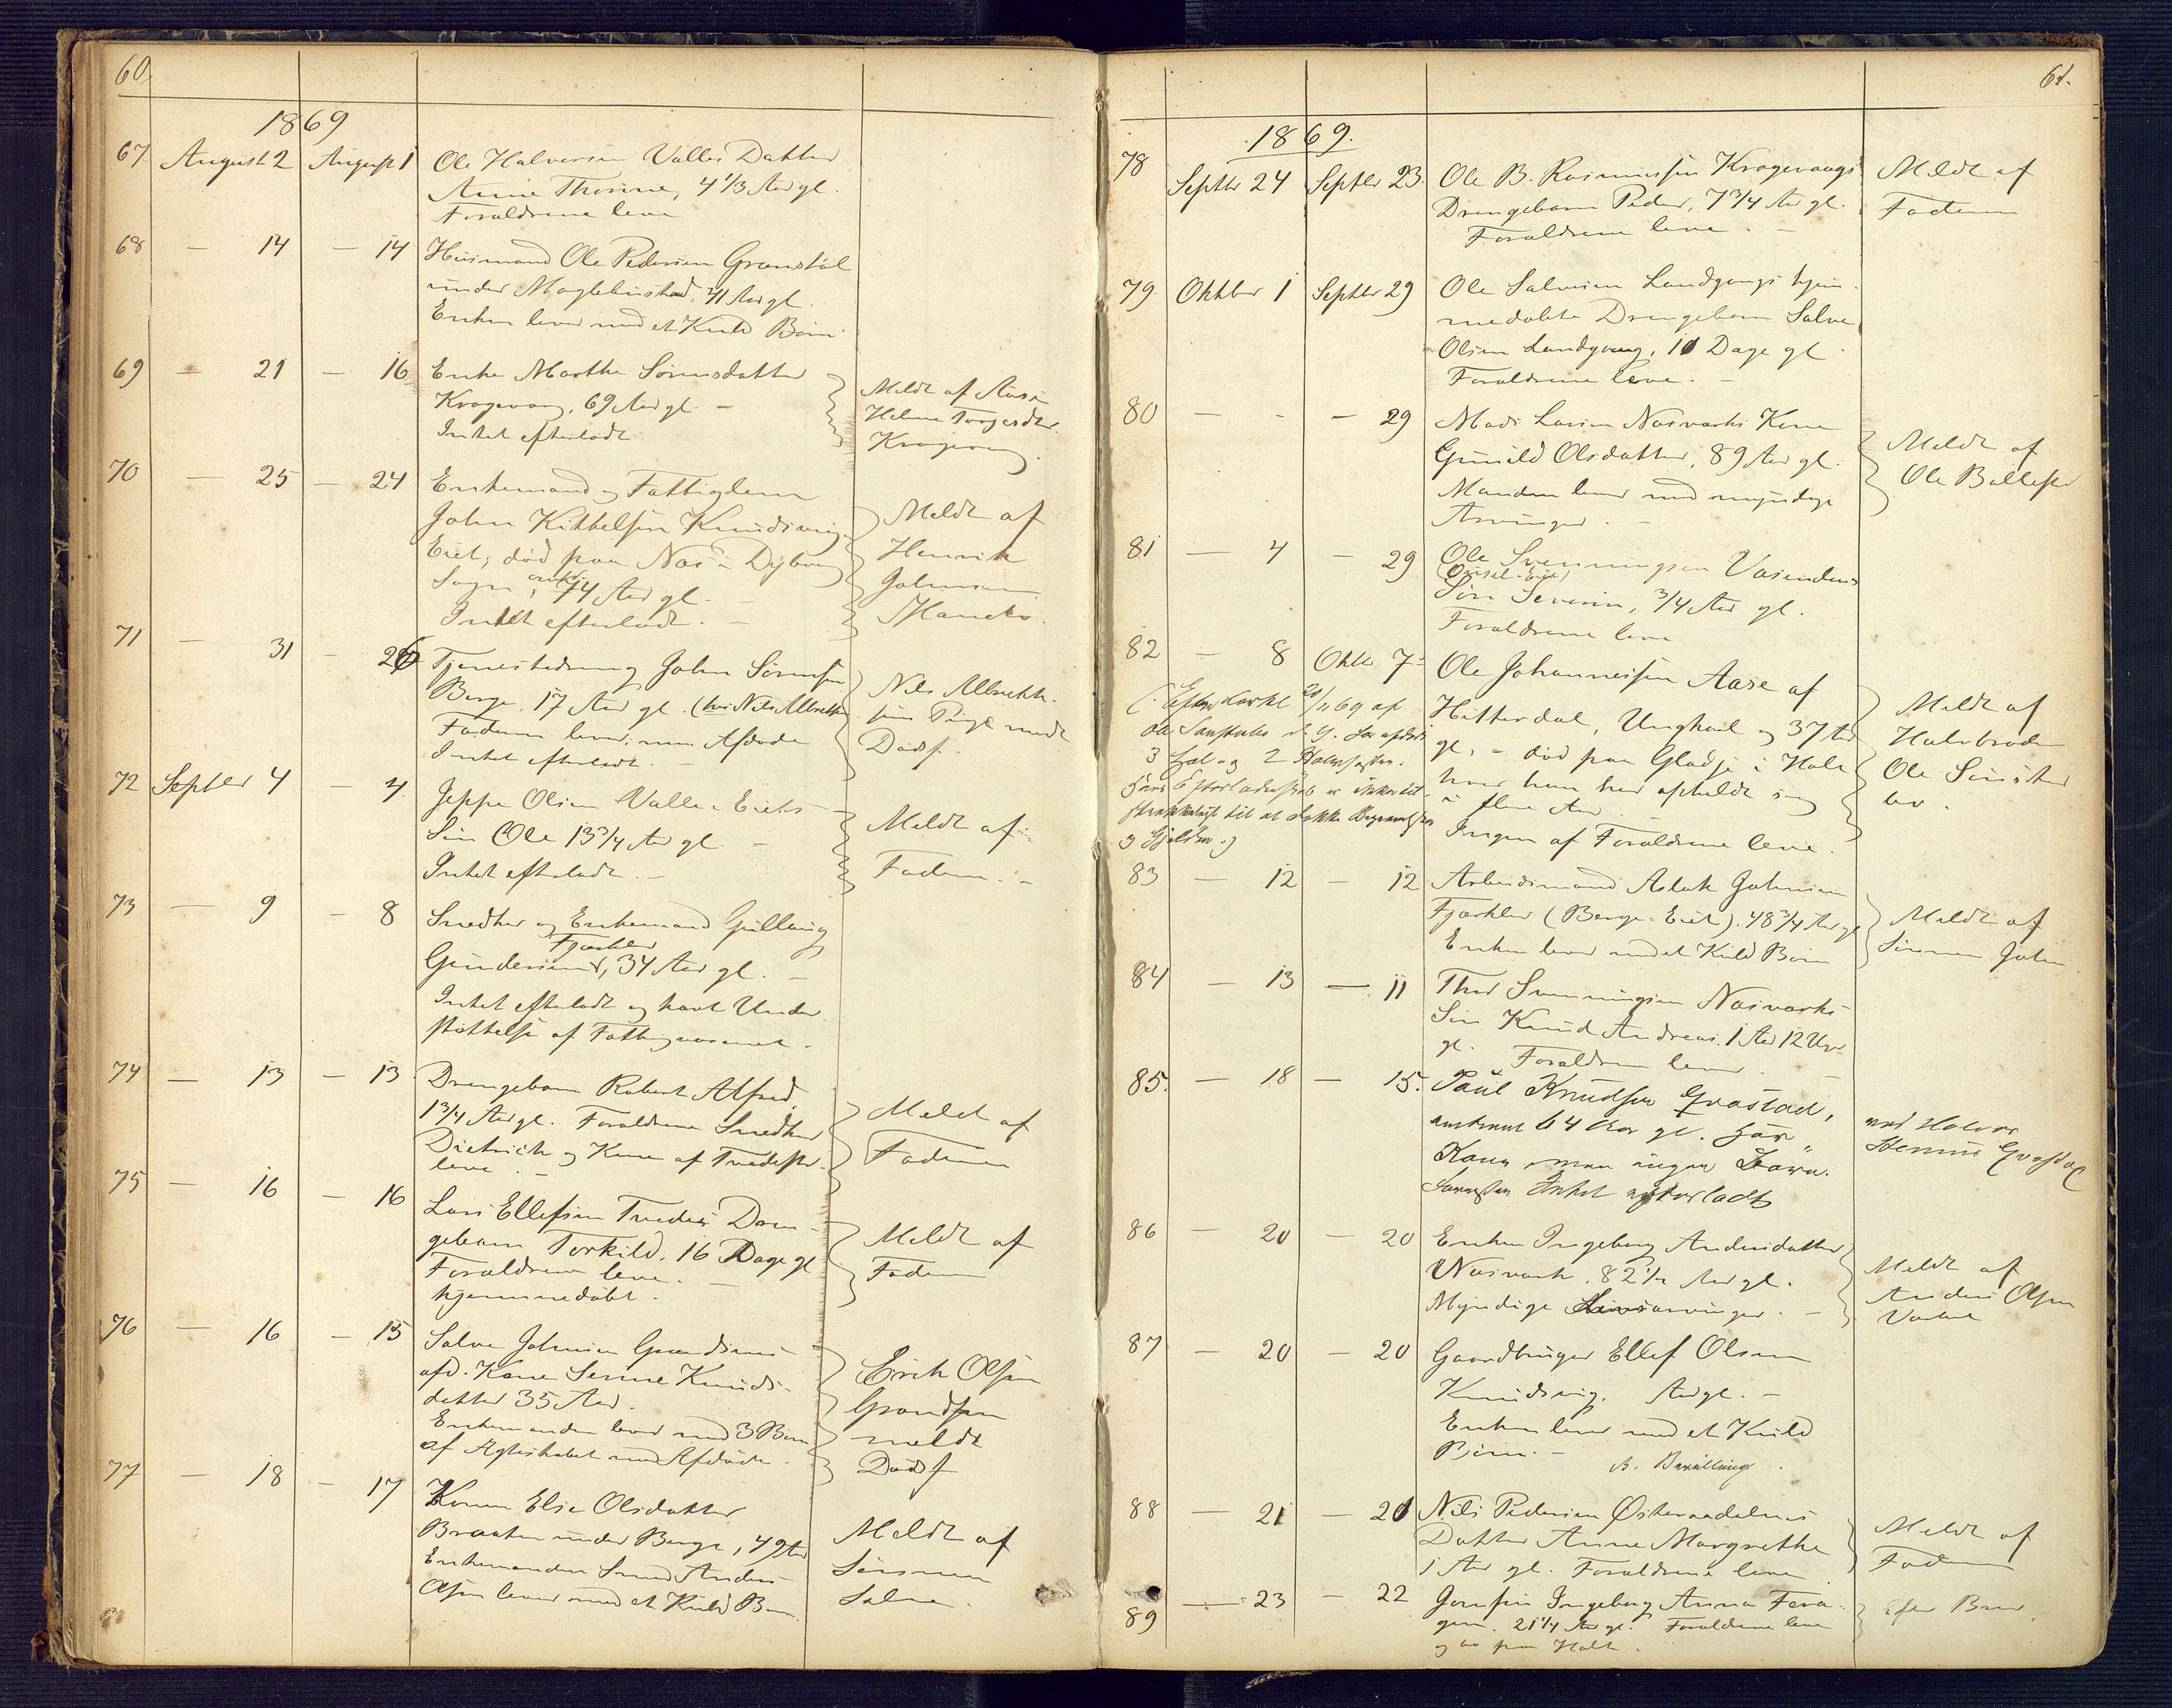 60.
1869
67 August 2 August 1 Ole Halvorsen Valles Datter
Anne Thorine, 4 1/3 Aar gl.
Forældrene leve
68 — 14 — 14 Huusmand Ole Pedersen Grønstøl
under Moglebustad, 41 Aar gl.
Enken lever med et Kuld Børn
69 — 21 — 16 Enke Marthe Sørensdatter
Kragevaag, 69 Aar gl. —
Intet efterladt
Meldt af
Helene
Kragevaag
70 — 25 — 24 Enkemand og Fattiglem
John Kittelsen Knudsvig
Eiet, død paa Næs i Dybvaag
Sogn, 74 Aar gl. —
Intet efterladt. —
Meldt af
Henrik
Johnsen
71 — 31 — 26 Tjenestedreng John Sørensen
Berge, 17 Aar gl. (hos Nils Albretsen
Faderen lever, men Afdøde
Intet efterladt. —
Nils Albreth-
sens Pige meldt
Dødsf.
72 Septbr 4 — 4 Jeppe Olsen Valle-Eiets
Søn Ole 13 3/4 Aar gl. —
Intet efterladt. —
Meldt af
Faderen. —
73 — 9 — 8 Snedker og Enkemand Gullaug
Fjærklev
Gundersen, 34 Aar gl. —
Intet efterladt og havt Under
støttelse af Fattigvæsenet.
74 — 13 — 13 Drengebarn Robert Alfred,
1 3/4 Aar gl. Forældrene Snedker
Dietrich og Kone af Tvedestr.
leve. —
Meldt af
Faderen
75 — 16 — 16 Lars Ellefsen Tvedes Dren-
gebarn Torkild, 16 Dage gl
Forældrene leve. —
hjemmedøbt.
Meldt af
Faderen
76 — 16 — 15 Salve Johnsen Grændsens
afd. Kone Serine Knuds-
datter 35 Aar.
Enkemanden lever med 3 Børn
af Ægteskabet med Afdøde.
Erik Olsen
Grændsen
meldt
Dødsf
77 — 18 — 17 Konen Else Olsdatter
Braaten under Berge, 49 Aar
Enkemanden Smed Anders
Olsen lever med et Kuld Børn.
Meldt af
Sønnen
Salve.
61.
1869.
78 Septbr 24 Septbr 23. Ole B. Rasmussen Kragevaags
Drengebarn Peder, 7 3/4 Aar gl.
Forældrene leve. —
Meldt af
Faderen
79 Oktbr 1 Septbr 29 Ole Salvesen Landgangs hjem-
medøbte Drengebarn Salve
Olsen Landgang, 10 Dage gl
Forældrene leve. —
80 — - — 29 Mads Larsen Næsværks Kone
Gunild Olsdatter, 89 Aar gl.
Manden lever med myndige
Arvinger. —
Meldt af
Ole
81 — 4 — 29 Ole Svenningsen Vasendens
Søn Severin, 3/4 Aar gl.
Forældrene leve
82 — 8 Oktbr 7 Ole Johannessen Aase af
Hitterdal, Ungkarl og 37 Aar
gl. — død paa Gladje i Holt
hvor han har opholdt sig
i flere Aar —
Ingen af Forældrene leve.
Meldt af
Halvbroder
Ole
lev.
20/11 69 af
3 2
til at dække Begravelsen
og Gjælden.)
83 — 12 — 12 Arbeidsmand Aslak Johnsen
Fjærklev (Berge-Eiet). 48 3/4 Aar gl
Enken lever med et Kuld Børn
Meldt af
Sønnen John
84 — 13 — 11 Thor Svenningsen Næsværks-
Søn Knud Andreas. 1 Aar 12 Uger
gl. Forældrene lever. —
85. — 18 — 15. Paul Knudsen Gvastad,
omtrent 64 Aar gl. Har
Kone, men ingen Børn.
Intet efterladt
ved Halvor
86 — 20 — 20 Enken Ingeborg Andersdatter
Næsværk, 82 1/2 Aar gl.
Myndige Livsarvinger. —
Meldt af
Anders Olsen
87 — 20 — 20 Gaardbruger Ellef Olsen
Knudsvig. Aar gl. —
Enken lever med et Kuld
Børn. —
B. Bevilling.
88 — 21 — 20 Nils Pedersen Østeraadalens
Datter Anne Margrethe
1 Aar gl. Forældrene leve
Meldt af
Faderen
89 — 23 — 22 Jomfru Ingeborg Anna
21 1/4 Aar gl. Forældrene leve
og bo paa Holt.